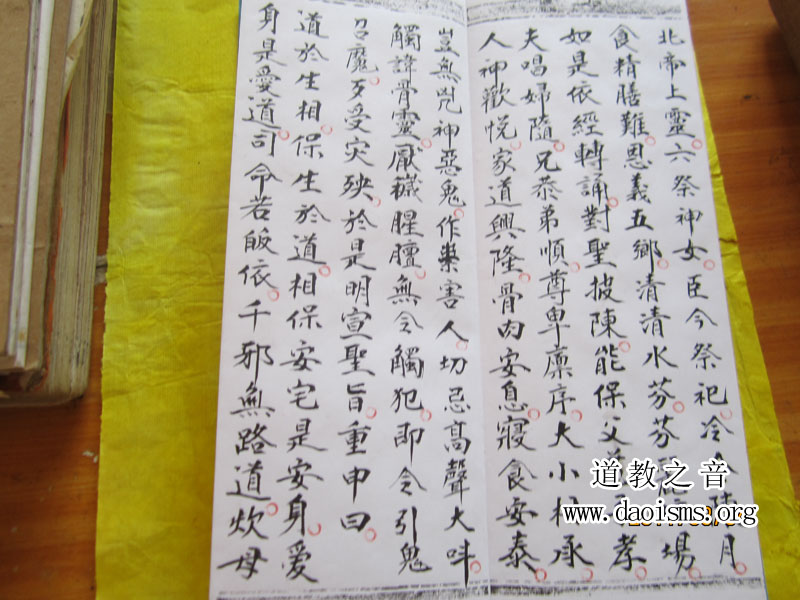 北帝上靈六祭神女臣今祭祀冷月
食精膳難恩義五鄉清清水芬芬場
如是依經轉誦對聖披陳能保父孝
夫唱婦隨兄恭弟順尊卑廪序大小相承
人神歡悅家道興隆骨肉安息寢食安泰
豈無咒神惡鬼作祟害人切忌高聲大呌
觸諱骨靈厭穢腥膻無令觸犯即令引鬼
召魔歹受灾殃於是明宣聖旨重申曰
道於生相保生於道相保安宅是安身愛
身是愛道司命若皈依千邪無路道炊母
道教之音
www.daoisms.org